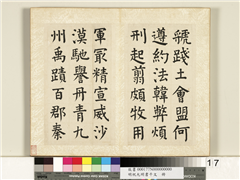 虢踐土會盟何
遵約法韓弊煩
刑起翦頗牧用
軍冣精宣威沙
漠馳譽丹青九
州禹蹟百郡秦
17